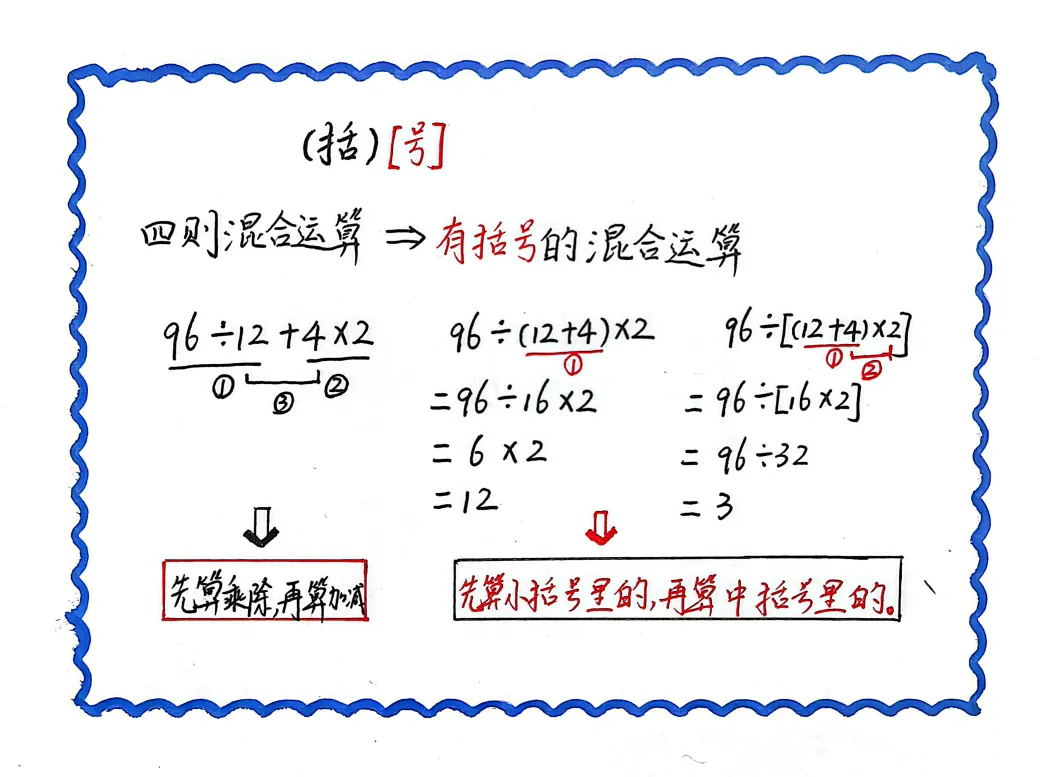 (括)[号]
四则混合运算 ⇒ 有括号的混合运算
96÷12+4×2 96÷(12+4)×2 96÷[(12+4)×2]
① ③ ② ① ① ②
=96÷16×2 =96÷[16×2]
=6×2 =96÷32
=12 =3
先算乘除,再算加减 先算小括号里的,再算中括号里的。